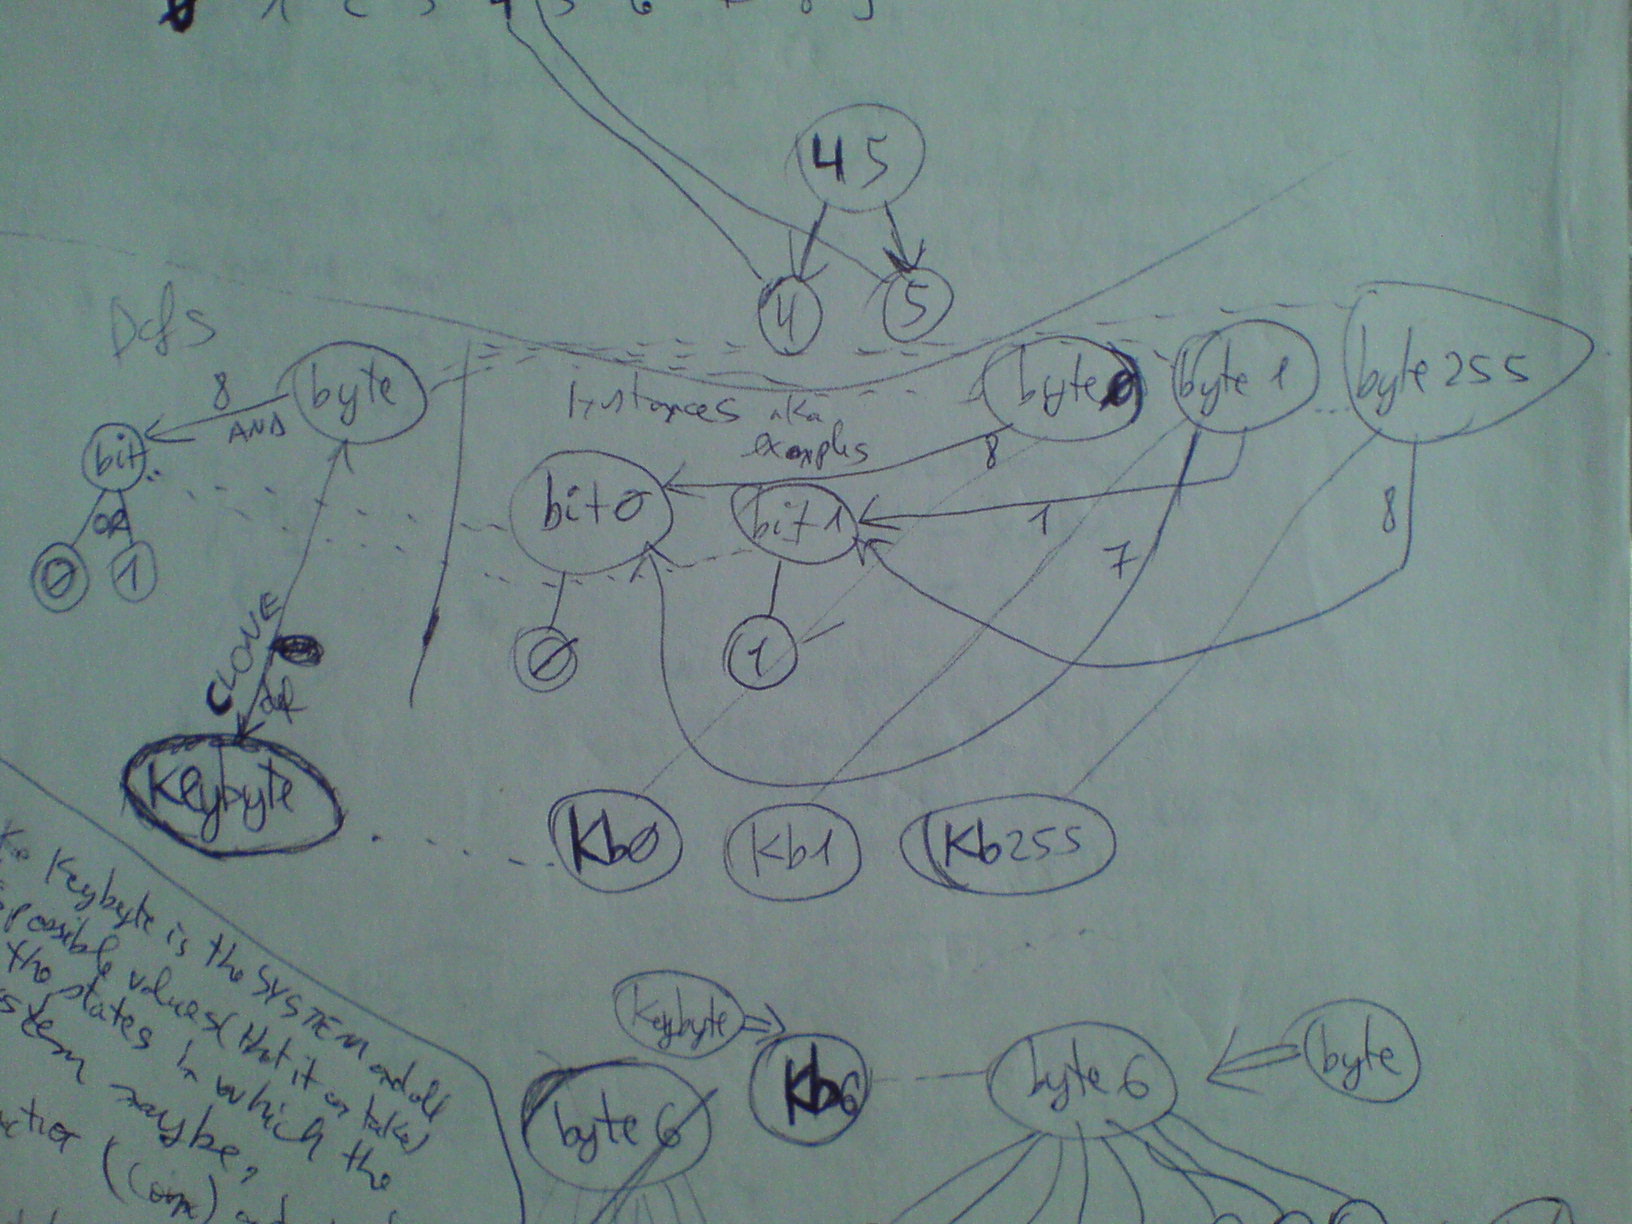 4 5
4
5
Defs
8
AND
byte
bit
OR
0
1
CLONE
OR
Keybyte
Instances aka
examples
byte 0
byte 1
byte 255
8
1
7
8
bit 0
bit 1
0
1
Kb0
Kb1
Kb255
Keybyte is the SYSTEM and all
possible values (that it can take)
the states in which the
system maybe,
Keybyte
Kb6
byte 6
byte 6
byte